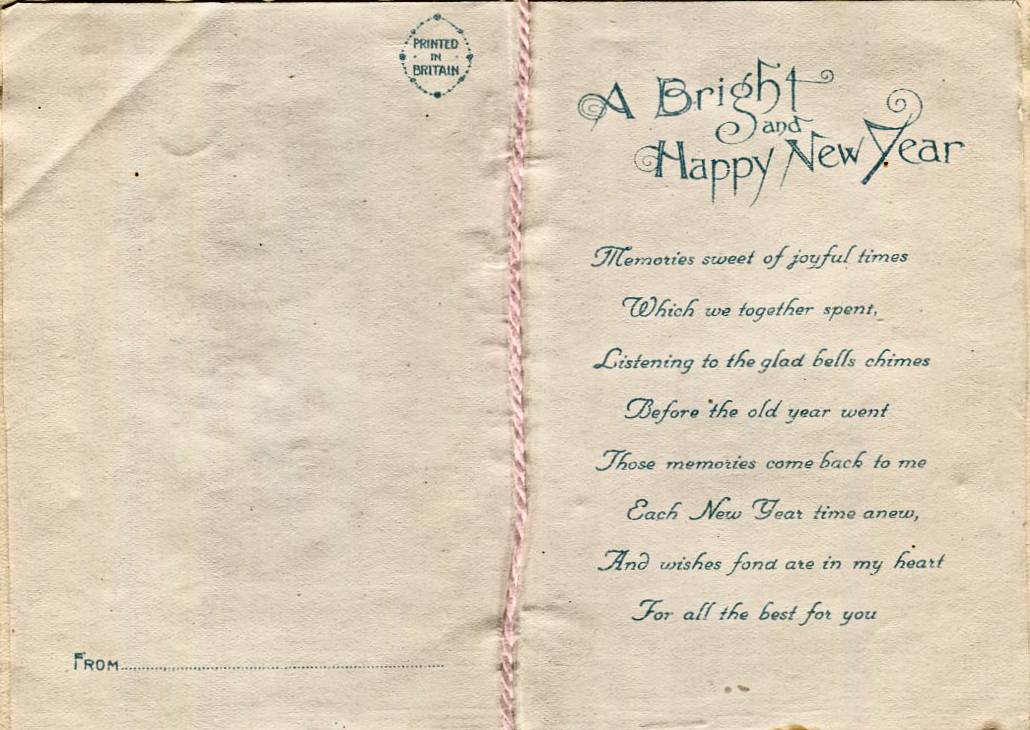 PRINTED
IN
BRITAIN
FROM
A Bright
and
Happy New Year
Memories sweet of joyful times
Which we together spent,
Listening to the glad bells chimes
Before the old year went
Those memories come back to me
Each New Year time anew,
And wishes fond are in my heart
For all the best for you